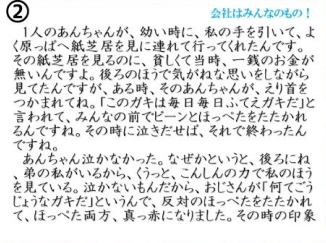 ②
会社はみんなのもの！
1人のあんちゃんが、幼い時に、私の手を引いて、よ
く原っぱへ紙芝居を見に連れて行ってくれたんです。
その紙芝居を見るのに、貧しくて当時、一銭のお金が
無いんですよ。後ろのほうで気がねな思いをしながら
見てたんですが、ある時、そのあんちゃんが、えり首を
つかまれてね。「このガキは毎日毎日ふてえガキだ」と
言われて、みんなの前でビーンとほっぺたをたたかれ
るんですね。その時に泣きだせば、それで終わったん
ですね。
あんちゃん泣かなかった。なぜかというと、後ろにね
、弟の私がいるから、くうっと、こんしんの力で私のほう
を見ている。泣かないもんだから、おじさんが「何てごう
じょうなガキだ」というんで、反対のほっぺたをたたかれ
て、ほっぺた両方、真っ赤になりました。その時の印象